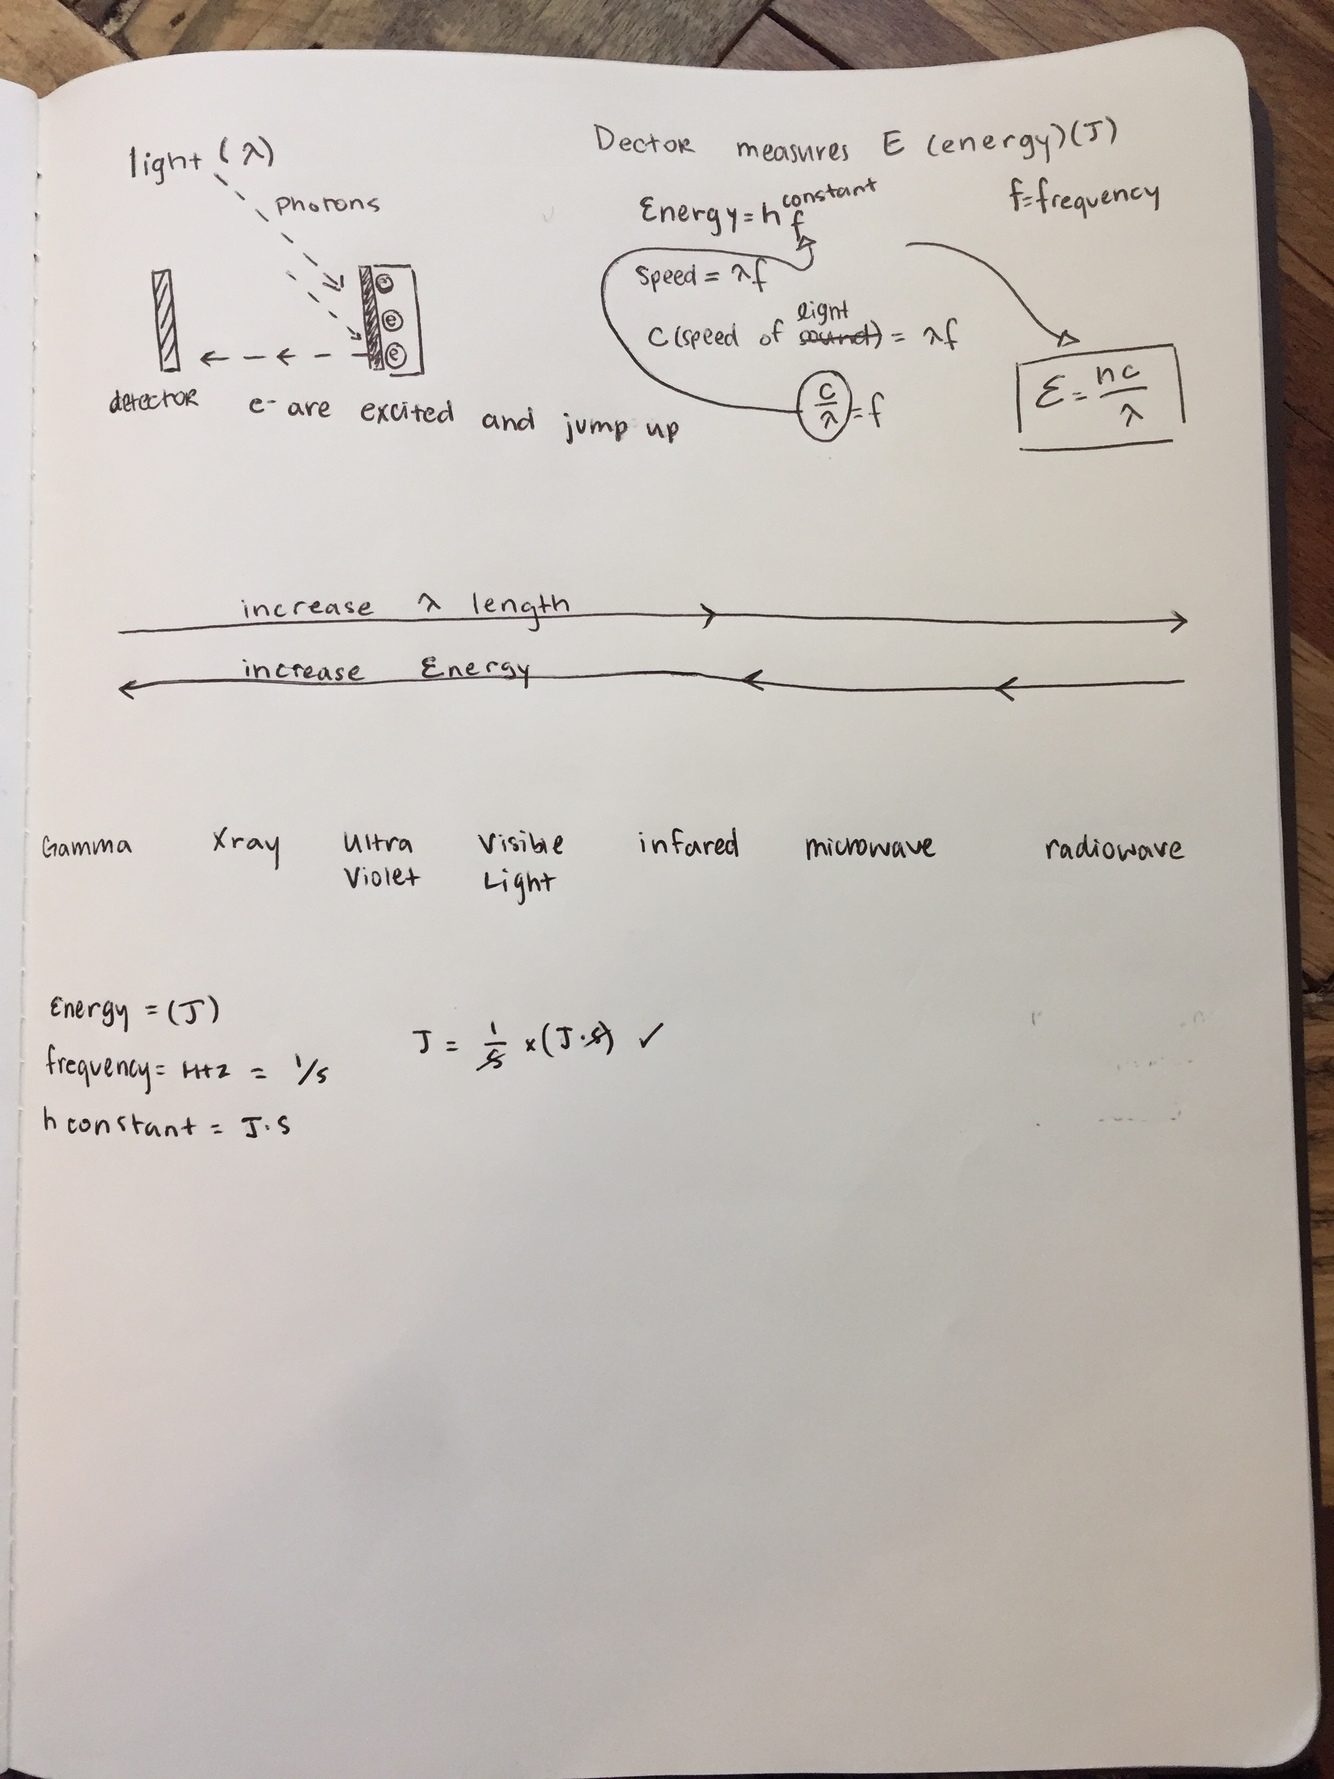 light (λ)
photons
detector
e- are excited and jump up
Dector measures E (energy)(J)
Energy = h constant f
f=frequency
Speed = λf
C (speed of sound light) = λf
c/λ = f
E = hc/λ
increase λ length
increase Energy
Gamma Xray Ultra Violet Visible Light infared microwave radiowave
Energy = (J)
frequency = Htz = 1/s
h constant = J·s
J = 1/s x (J·s) ✓
e
e
e